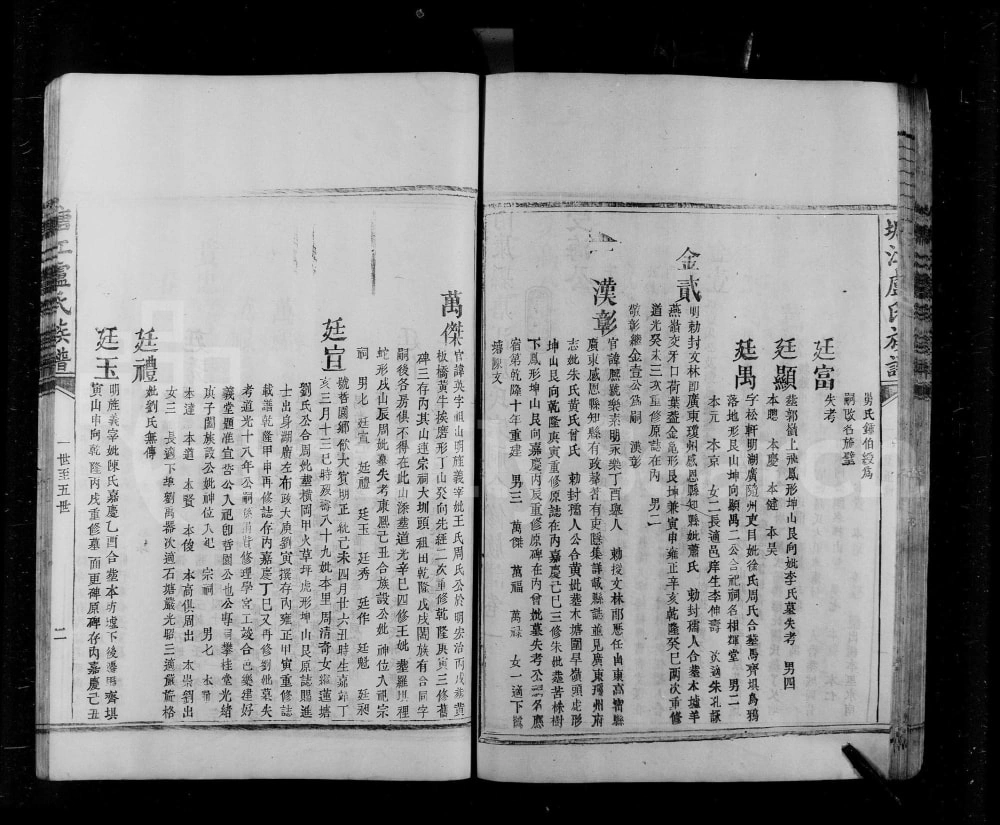 塘江盧氏族譜
男氏鍾伯綬爲
嗣改名施璧
廷富
失考
廷顯
葬郭嶺上飛鳳形坤山艮向妣李氏墓失考 男四
本聰 本慶 本健 本昊
廷禹
字松軒明湖廣隨州吏目妣徐氏周氏合葬馬齊垻烏鴉
落地形艮山坤向顯禹二公合祀祠名相輝堂 男二
本元 本京 女二長適邑庠生李伸壽 次適朱孔詠
金貳
明勅封文林郎廣東瓊州感恩縣知縣妣蕭氏 勅封孺人合葬木墟羊
燕嶺交牙口荷葉蓋金龜形艮坤兼寅申雍正辛亥乾隆癸巳兩次重修
道光癸未三次重修原誌在內 男二
敬彰繼金壹公爲嗣 漢彰
漢彰
官諱熙號樂素明永樂丁酉舉人 勅授文林郎歷任山東高密縣
廣東感恩縣知縣有政蹟著有東隱集詳載縣誌並見廣東瓊州府
志妣朱氏黃氏曾氏 勅封孺人公合黃妣葬木塘圍旱嶺頭走形
坤山艮向乾隆庚寅重修原誌在內嘉慶丙辰三修朱妣葬苦株樹
下鳳形坤山艮向嘉慶丙辰重修原碑在內曾妣墓失考公
宿第乾隆十年重建 男三 萬傑 萬福 萬祿 女一適下
塘陳文
萬傑
官諱英字祖山明旌義宰妣王氏周氏公於明宏治丙戌葬黃
板橋黃牛挨磨形丁山癸向先經二次重修乾隆庚寅三修舊
碑三存內其山連宗祠大圳頭祖田乾隆戊戌闔族有合同字
嗣後各房俱不得在此山添葬道光辛巳四修王妣 葬羅垻裡
蛇形戌山辰周妣墓失考東熙己丑合族設公妣神位入祀宗
祠 男九 廷宣 廷禮 廷玉 廷秀 廷作 廷魁 廷昶
廷宣
號哲園鄉飲大賓明正統己未四月廿六丑時生嘉靖丁
亥三月十三巳時歿壽八十九妣本里周清奇女繼蓮塘
劉氏公合周妣葬橫岡甲火草坪虎形坤山艮原誌賜進
士出身湖廣左布政大庾劉寅撰存內雍正甲寅重修誌
載譜乾隆甲申再修誌存內嘉慶丁巳又再修劉妣墓失
考道光十八年公嗣孫捐貲修理學宮工竣合邑樂建好
義堂題准宣哲公入祀卽哲園公也公墅司攀桂堂光緒
庚子闔族設公妣神位入祀 宗祠 男七 本雅
本達 本道 本賢 本俊 本高俱周出 本崇劉出
女三 長適下埠劉萬器次適石塘嚴光昭三適黨前格
廷禮
妣劉氏無傳
廷玉
明旌義宰妣陳氏嘉慶乙酉合葬本坊墟下後瀑馬齊垻
寅山申向乾隆丙戌重修墓而更碑原碑存內嘉慶己丑
塘江盧氏族譜
一世至五世
二